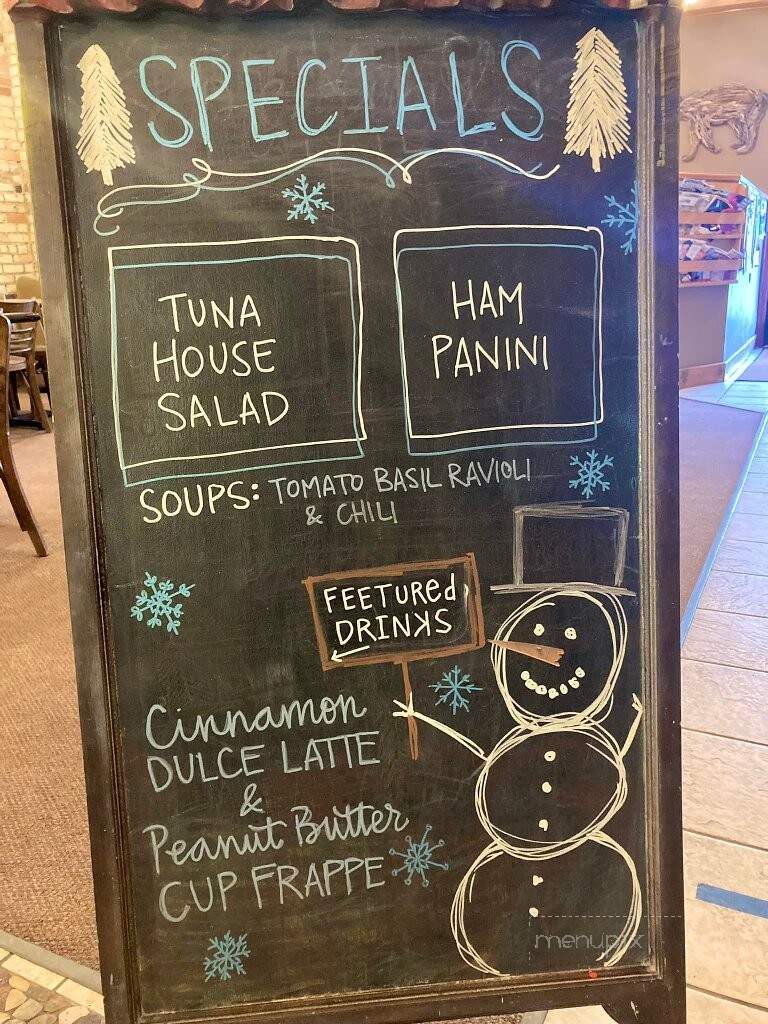 SPECIALS
TUNA
HOUSE
SALAD
HAM
PANINI
SOUPS: TOMATO BASIL RAVIOLI
& CHILI
FEETURed
DRINKS
Cinnamon
DULCE LATTE
&
Peanut Butter
CUP FRAPPE
menupix